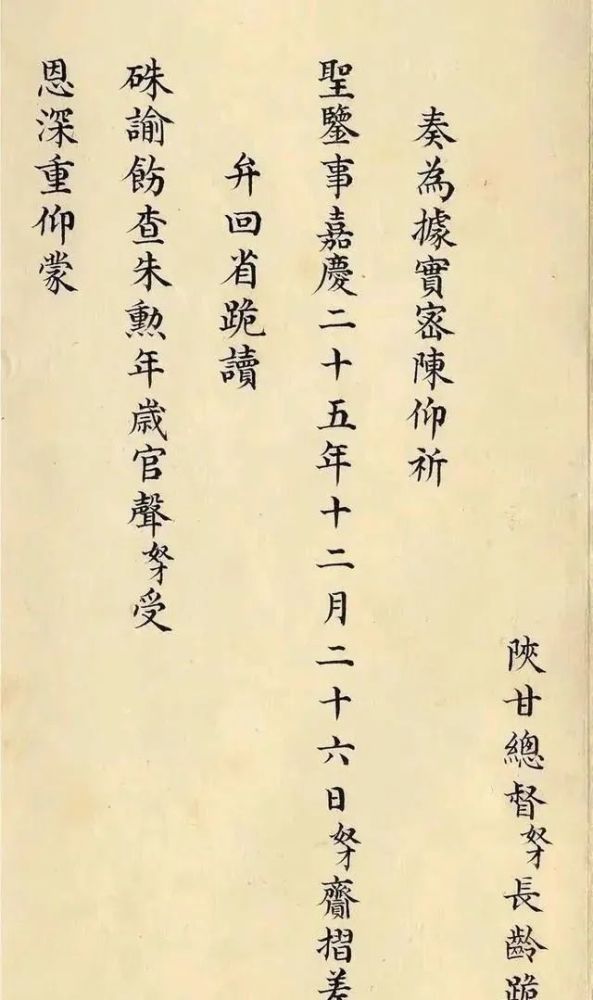 陜甘總督奴才長齡跪
奏為據實密陳仰祈
聖鑒事嘉慶二十五年十二月二十六日奴才齎摺差
弁回省跪讀
硃諭飭查朱勲年歲官聲奴才受
恩深重仰蒙